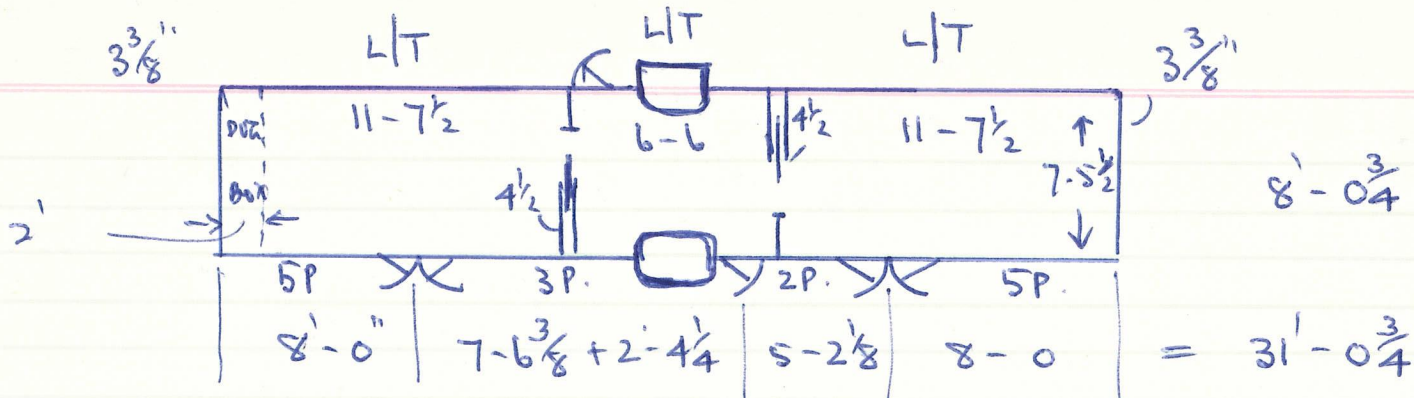 3 3/8" L|T L|T L|T 3 3/8"
11-7 1/2 6-6 4 1/2 11-7 1/2
DUG
BOX
4 1/2 7-5 1/2 8'-0 3/4
2'
5P 3P. 2P. 5P.
8'-0" 7-6 3/8 + 2'-4 1/4 5-2 1/8 8-0 = 31'-0 3/4